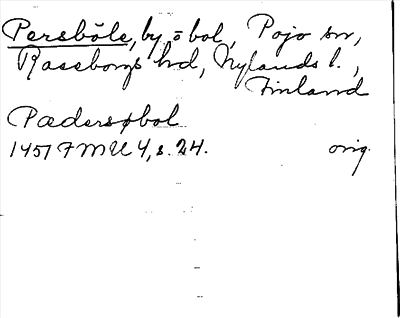 Persböle, by o bol, Pojo sn,
Raseborgs hd, Nylands l.,
Finland
Pædersøbol
1451 FMU 4, s. 24. orig.